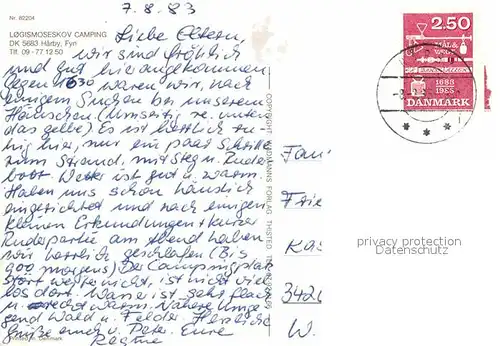 7.8.83
Nr. 82204
LØGISMOSESKOV CAMPING
DK 5683 Hårby, Fyn
Tlf. 09 - 77 12 50
Liebe Eltern,
wir sind fröhlich
und gut hier angekommen.
Gegen 1630 waren wir, nach
einigem Suchen bei unserem
Häuschen. (Umseitig re. unten
das gelbe) Es ist herrlich ru-
hig hier, nur ein paar Schritte
zum Strand, mit Steg u. Ruder
boot. Wetter ist gut u. warm.
Haben uns schon häuslich
eingerichtet und nach einigen
kleinen Erkundungen + kurzer
Ruderpartie am Abend haben
wir herrlich geschlafen (Bis
900 morgens) Der Campingplatz
stört weiter nicht, ist nicht viel
los dort. Wasser ist sehr flach
u. recht warm. Nähere Umge
gend Wald u. Felder. Herzliche
Grüße auch v. Peter. Eure
Regine
Printed in Denmark
COPYRIGHT FORLAG THISTED
2.50
MÅL &
VÆGT
1683
1983
DANMARK
Fam
Frie
Kas
3420
W.
privacy protection
Datenschutz